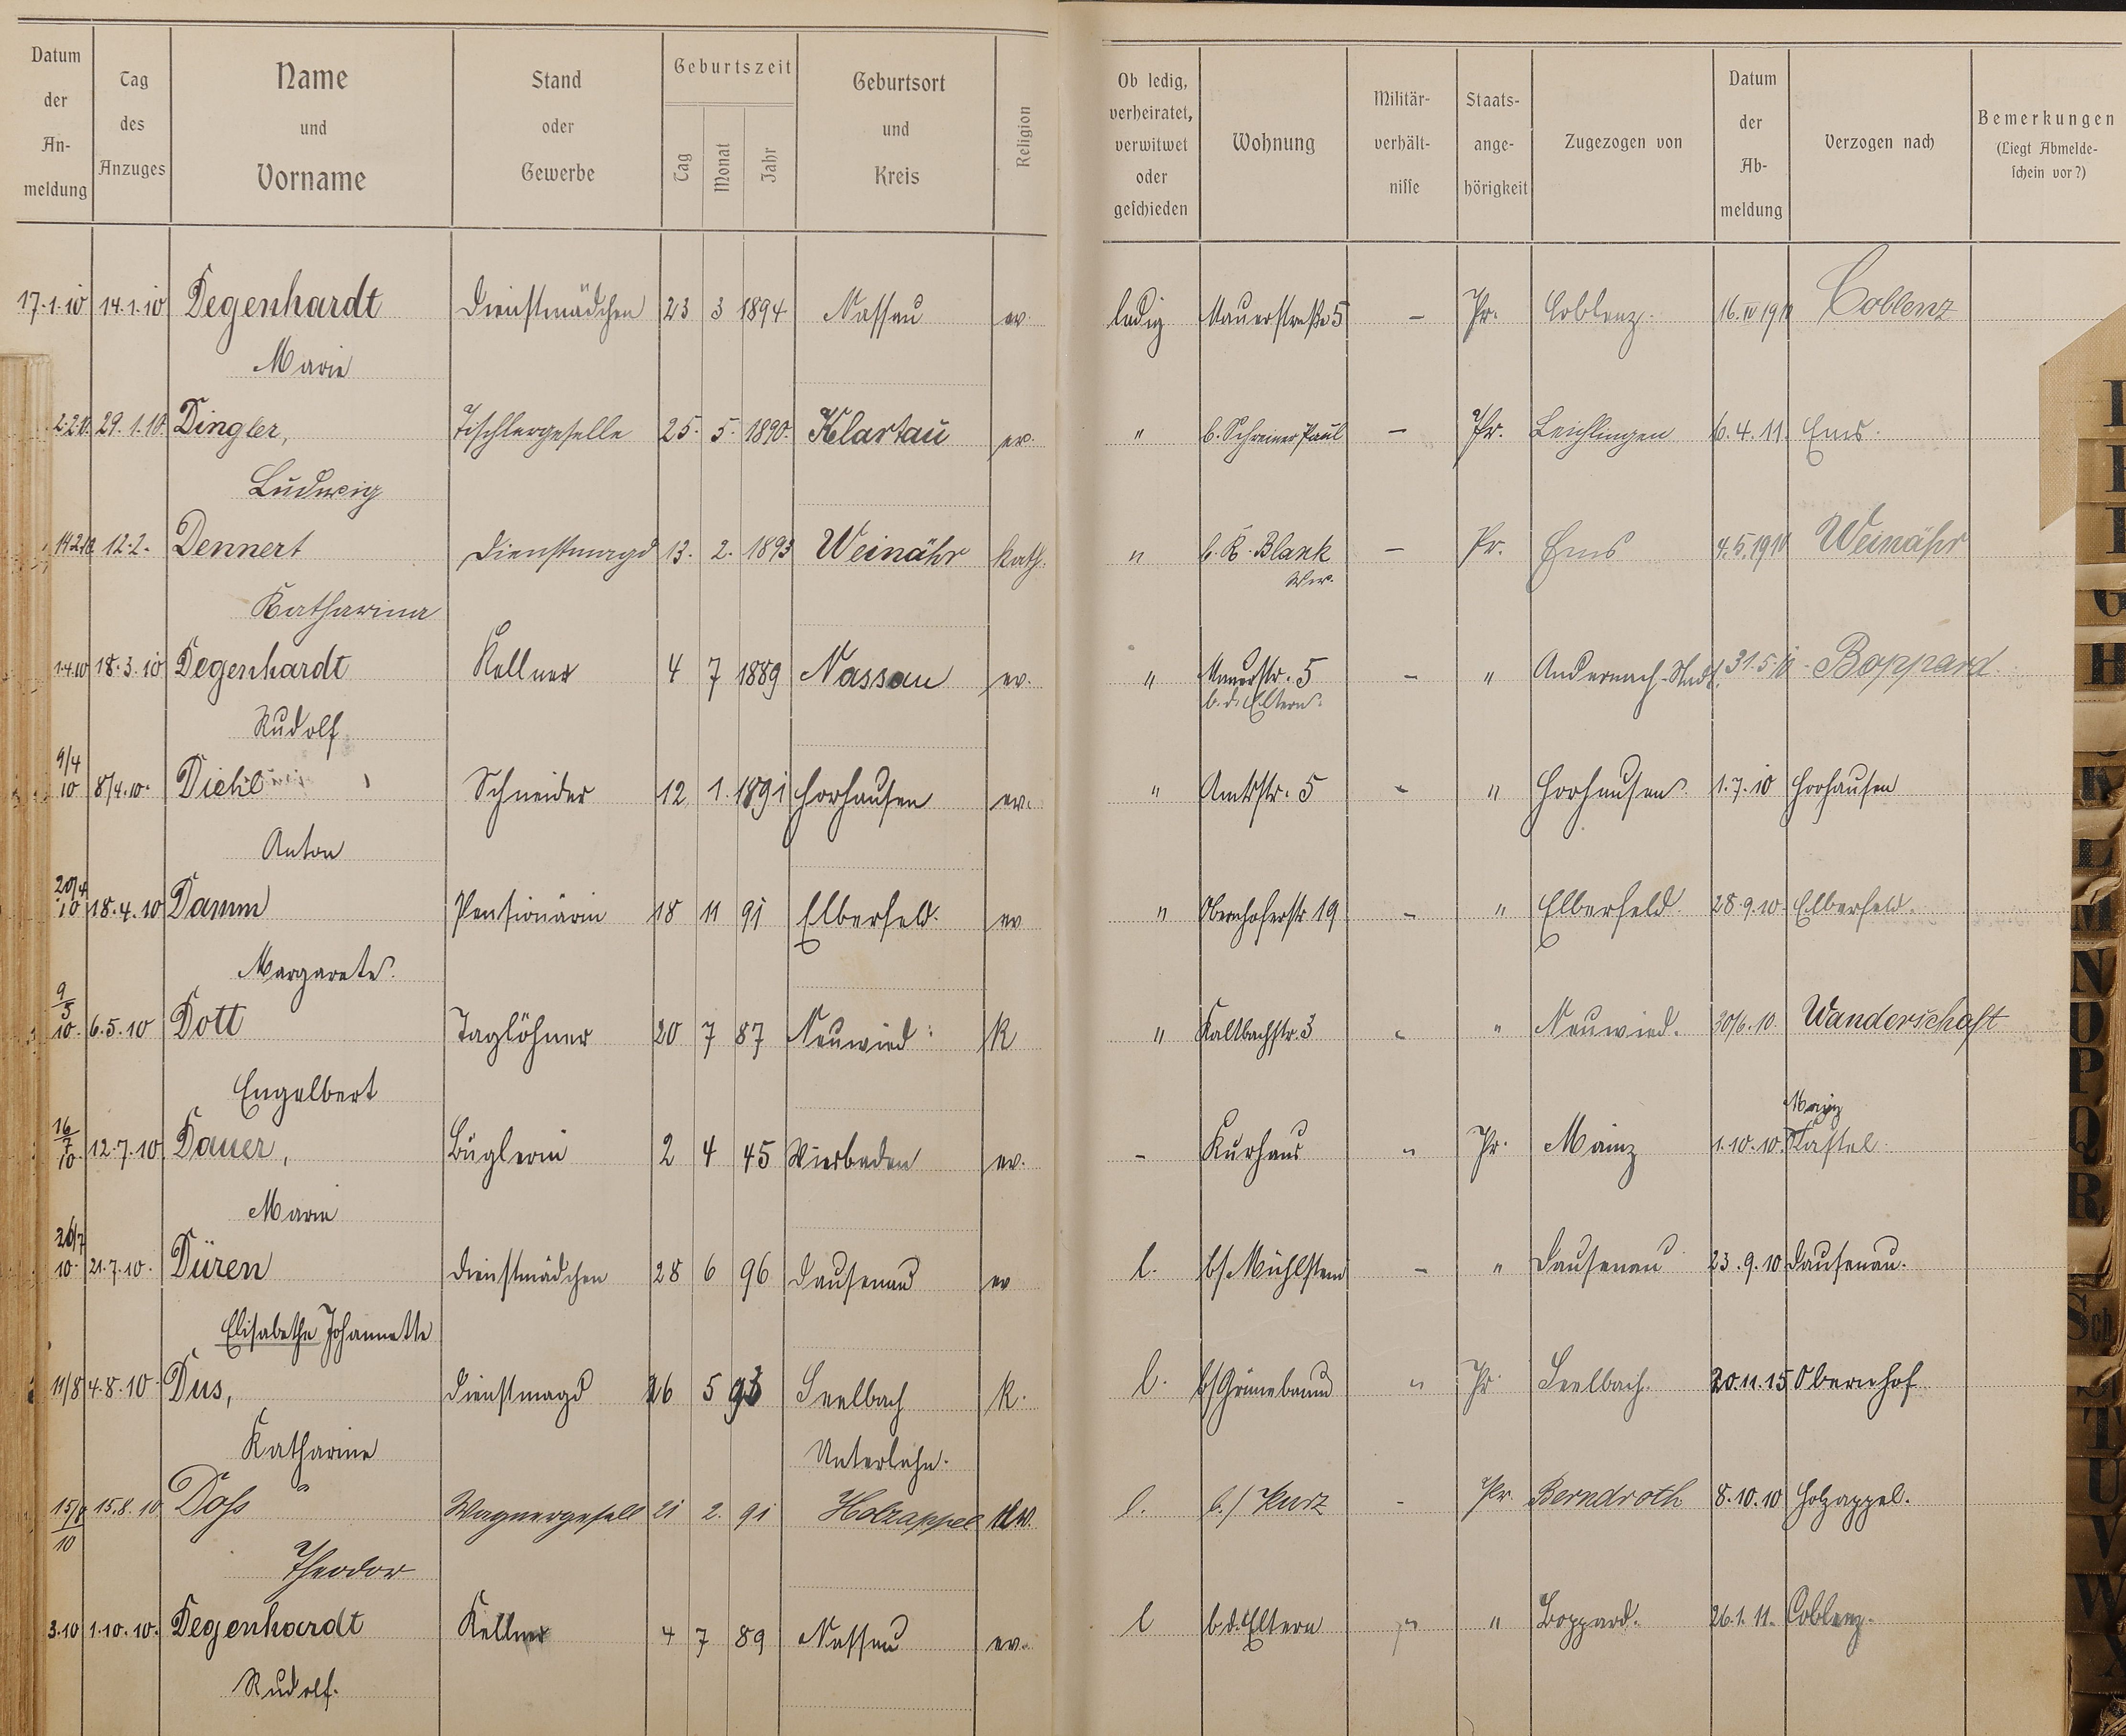 Datum der An- meldung | Tag des Anzuges | Name und Vorname | Stand oder Gewerbe | Geburtszeit Tag Monat Jahr | Geburtsort und Kreis | Religion | Ob ledig, verheiratet, verwitwet oder geschieden | Wohnung | Militär- verhält- nisse | Staats- ange- hörigkeit | Zugezogen von | Datum der Ab- meldung | Verzogen nach | Bemerkungen (Liegt Abmelde- schein vor?)
17.1.10 14.1.10 Degenhardt Dienstmädchen 23 3 1894 Nassau ev. ledig Mauerstraße 5 – Pr. Coblenz. 16.IV 1910 Coblenz
Marie
2.2.10. 29.1.10. Dingler, Tischlergeselle 25. 5. 1890. Klartau ev. " b. Schreiner Paul – Pr. Leichlingen 6.4.11. Ems.
Ludwig
14.2.10 12.2. Dennert Dienstmagd 13. 2. 1893 Weinähr kath. " b. K. Blank – Pr. Ems 4.5.1910 Weinähr
Wwe.
Katharina
1.4.10 18.3.10 Degenhardt Kellner 4 7 1889 Nassau ev. " Mauerstr. 5 – " Andernach-Stadt. 31.5.10 Boppard.
b. d. Eltern.
Rudolf
9/4 10 8/4.10. Diehl Schneider 12 1. 1891 Horhausen ev. " Amtsstr. 5 – " Horhausen 1.7.10 Horhausen
Anton
20/4 10 18.4.10 Damm Pensionärin 18 11 91 Elberfeld. ev " Obernhoferstr 19 – " Elberfeld. 28.9.10. Elberfeld.
Margarete.
9/5 10. 6.5.10 Dott Taglöhner 20 7 87 Neuwied. K " Kaltbachstr. 3 " Neuwied. 30/6.10. Wanderschaft
Engelbert
16/7 10. 12.7.10 Dauer, Büglerin 2 4 45 Wiesbaden ev. – Kurhaus " Pr. Mainz 1.10.10. Mainz Kastel.
Marie
26/7 10. 21.7.10. Düren Dienstmädchen 28 6 96 Dausenau ev l. b/ Mühlstein – " Dausenau 23.9.10 Dausenau.
Elisabethe Johannette
11/8 4.8.10. Dus, Dienstmagd 26 5 93 Seelbach K. l. b/ Grünebaum " Pr. Seelbach. 20.11.15 Obernhof
Katharine Unterlahn.
15/8 10 15.8.10 Doß Wagnergesell 21 2. 91 Holzappel l. b./ Kurz – Pr. Berndroth 8.10.10 Holzappel.
Theodor
3.10 1.10.10. Degenhardt Kellner 4 7 89 Nassau ev. l b. d. Eltern " Boppard. 26.1.11. Coblenz.
Rudolf.
G
H
K
L
M
N
O
P
Q
R
Sch
St
T
U
V
W